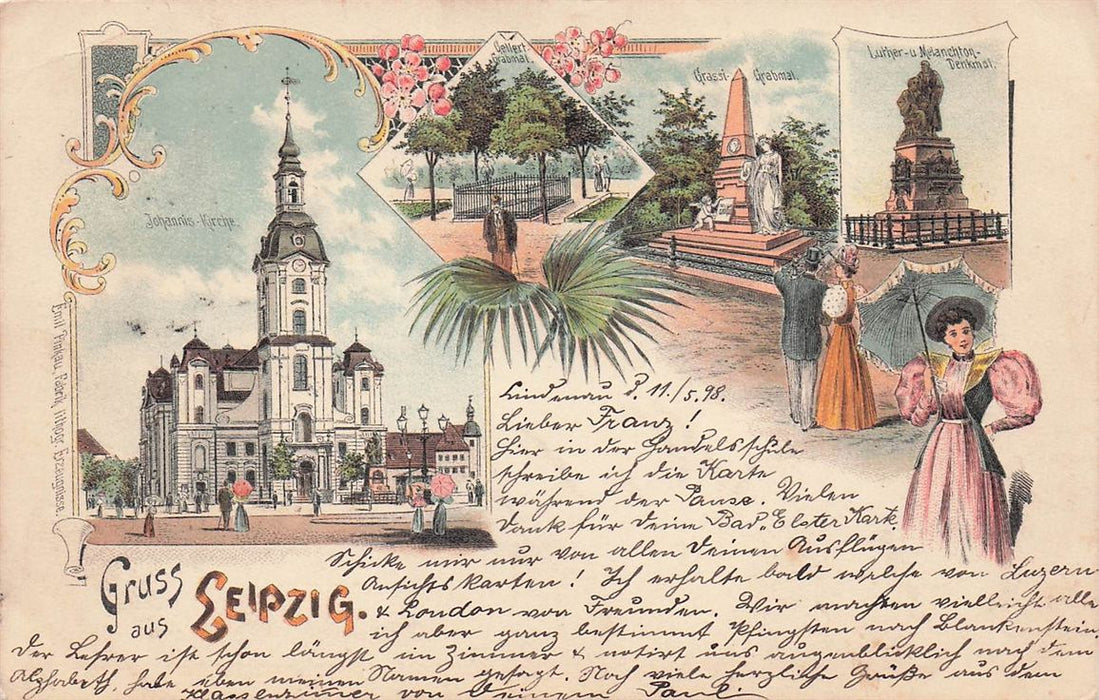 Johannis-Kirche.
Gellert-
Grabmal.
Grassi-Grabmal.
Luther- u. Melanchton-
Denkmal.
Emil Pinkau, Fabrik lithogr. Erzeugnisse.
Gruss
aus
LEIPZIG.
Lindenau d. 11./5.98.
Lieber Franz!
Hier in der Handelsschule
schreibe ich die Karte
während der Pause Vielen
Dank für Deine Bad. Elster Kart.
Schicke mir nur von allen Deinen Ausflügen
Ansichtskarten! Ich erhalte bald welche von Luzern
& London von Freunden. Wir machten vielleicht alle
ich aber ganz bestimmt Pfingsten nach Blankenstein.
Der Lehrer ist schon längst im Zimmer & notirt uns augenblicklich nach dem
Alphabeth, habe eben meinen Namen gesagt. Noch viele herzliche Grüße aus dem
Klassenzimmer von Deinem Paul.